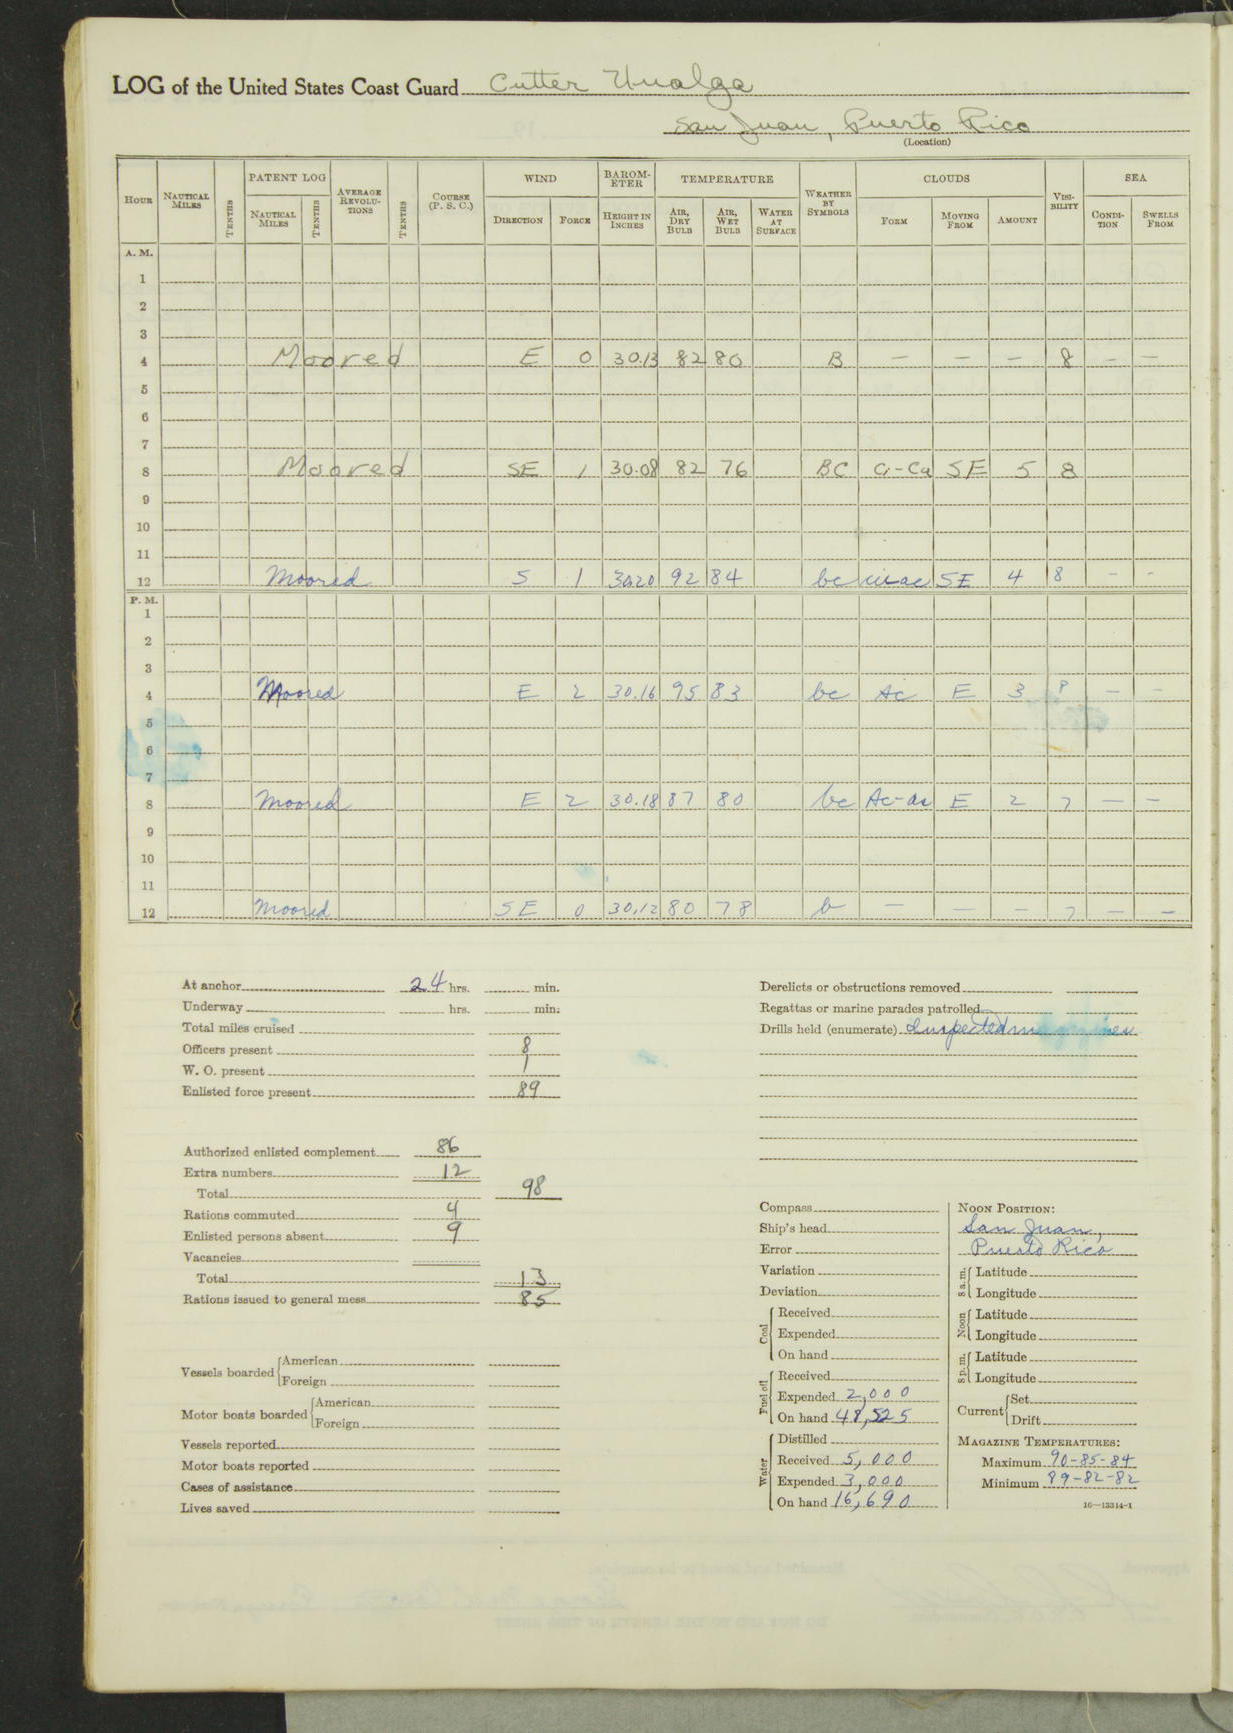 LOG of the United States Coast Guard Cutter Unalga
San Juan, Puerto Rico
(Location)
HOUR NAUTICAL MILES TENTHS PATENT LOG NAUTICAL MILES TENTHS AVERAGE REVOLU-TIONS TENTHS COURSE (P. S. C.) WIND DIRECTION FORCE BAROM-ETER HEIGHT IN INCHES TEMPERATURE AIR, DRY BULB AIR, WET BULB WATER AT SURFACE WEATHER BY SYMBOLS CLOUDS FORM MOVING FROM AMOUNT VISI-BILITY SEA CONDI-TION SWELLS FROM
A. M.
1
2
3
4 Moored E 0 30.13 82 80 B — — — 8 — —
5
6
7
8 Moored SE 1 30.08 82 76 BC Ci-Cu SE 5 8
9
10
11
12 Moored S 1 30.20 92 84 bc SE 4 8 - -
P. M.
1
2
3
4 Moored E 2 30.16 95 83 bc Ac E 3 8 — -
5
6
7
8 Moored E 2 30.18 87 80 bc E 2 7 — —
9
10
11
12 Moored SE 0 30.12 80 78 b — — — 7 — —
At anchor 24 hrs. min.
Underway hrs. min.
Total miles cruised
Officers present 8
W. O. present 1
Enlisted force present 89
Authorized enlisted complement 86
Extra numbers 12
Total 98
Rations commuted 4
Enlisted persons absent 9
Vacancies
Total 13
Rations issued to general mess 85
Vessels boarded American
Foreign
Motor boats boarded American
Foreign
Vessels reported
Motor boats reported
Cases of assistance
Lives saved
Derelicts or obstructions removed
Regattas or marine parades patrolled
Drills held (enumerate) Inspected magazines
Compass
Ship's head
Error
Variation
Deviation
Coal Received
Expended
On hand
Fuel oil Received
Expended 2,000
On hand 48,525
Water Distilled
Received 5,000
Expended 3,000
On hand 16,690
NOON POSITION:
San Juan,
Puerto Rico
8 a. m. Latitude
Longitude
Noon Latitude
Longitude
8 p. m. Latitude
Longitude
Current Set
Drift
MAGAZINE TEMPERATURES:
Maximum 90-85-84
Minimum 89-82-82
16—13314-1